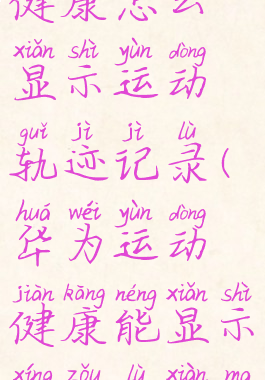 健康怎么
xiǎn shì yùn dòng
显示运动
guǐ jì jì lù
轨迹记录(
huá wéi yùn dòng
华为运动
jiàn kāng néng xiǎn shì
健康能显示
xíng zǒu lù xiàn ma